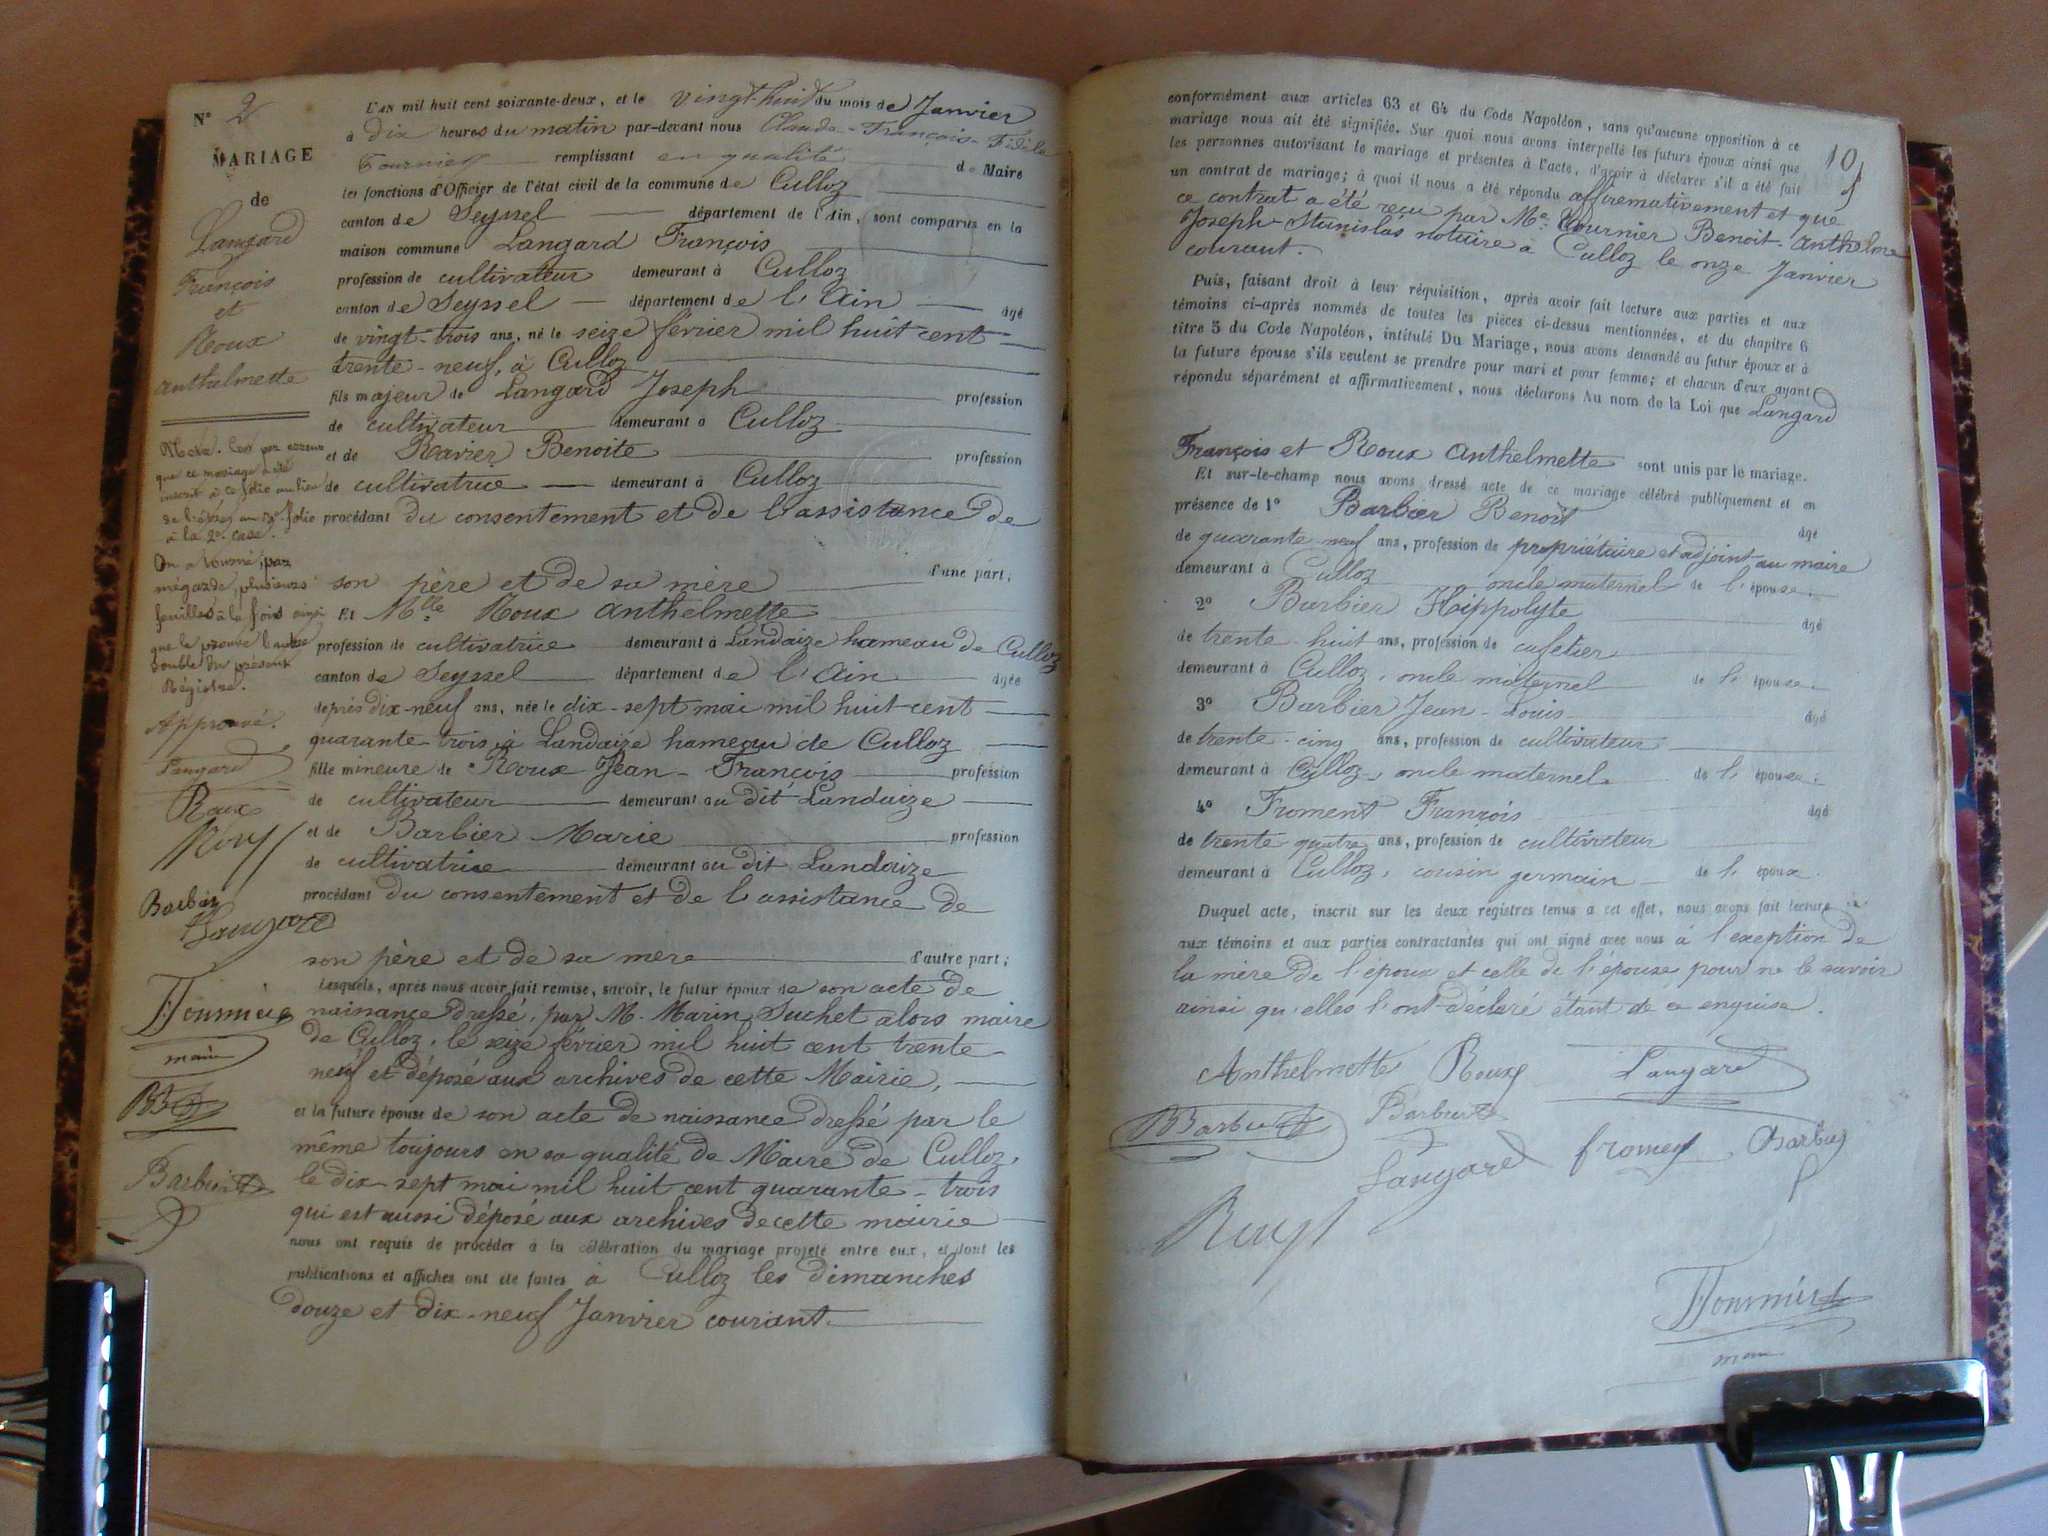 N° 2
MARIAGE
de
Langard
François
et
Roux
Anthelmette
Note. C'est par erreur
que ce mariage a été
inscrit à ce folio au lieu
de l'être au folio
à la 2e case.
On a tourné, par
mégarde, plusieurs
feuilles à la fois ainsi
que le prouve l'autre
double du présent
Régistre.
Approuvé.
Langard
Roux
Roux
Barbier
Langard
Fournier
maire
Barbier
L'AN mil huit cent soixante-deux, et le vingt-huit du mois de Janvier
à dix heures du matin par-devant nous Claude-François-Fidèle
Fournier remplissant en qualité de Maire
les fonctions d'Officier de l'état civil de la commune de Culloz
canton de Seyssel département de l'Ain, sont comparus en la
maison commune Langard François
profession de cultivateur demeurant à Culloz
canton de Seyssel département de l'Ain âgé
de vingt-trois ans, né le seize février mil huit cent
trente-neuf, à Culloz
fils majeur de Langard Joseph profession
de cultivateur demeurant à Culloz
et de Ravier Benoite profession
de cultivatrice demeurant à Culloz
procédant du consentement et de l'assistance de
son père et de sa mère d'une part;
Et Mlle Roux Anthelmette
profession de cultivatrice demeurant à Landaize hameau de Culloz
canton de Seyssel département de l'Ain âgée
de près dix-neuf ans, née le dix-sept mai mil huit cent
quarante-trois, à Landaize hameau de Culloz
fille mineure de Roux Jean-François profession
de cultivateur demeurant au dit Landaize
et de Barbier Marie profession
de cultivatrice demeurant au dit Landaize
procédant du consentement et de l'assistance de
son père et de sa mère d'autre part;
Lesquels, après nous avoir fait remise, savoir, le futur époux de son acte de
naissance dressé, par M. Marin Suchet alors maire
de Culloz, le seize février mil huit cent trente
neuf et déposé aux archives de cette Mairie,
et la future épouse de son acte de naissance dressé par le
même toujours en sa qualité de Maire de Culloz,
le dix-sept mai mil huit cent quarante-trois
qui est aussi déposé aux archives de cette mairie
nous ont requis de procéder à la célébration du mariage projeté entre eux, et dont les
publications et affiches ont été faites à Culloz les dimanches
douze et dix-neuf Janvier courant.
10
conformément aux articles 63 et 64 du Code Napoléon, sans qu'aucune opposition à ce
mariage nous ait été signifiée. Sur quoi nous avons interpellé les futurs époux ainsi que
les personnes autorisant le mariage et présentes à l'acte, d'avoir à déclarer s'il a été fait
un contrat de mariage; à quoi il nous a été répondu affirmativement et que
ce contrat a été reçu par Me. Fournier Benoit-Anthelme
Joseph-Stanislas notaire à Culloz le onze Janvier
courant.
Puis, faisant droit à leur réquisition, après avoir fait lecture aux parties et aux
témoins ci-après nommés de toutes les pièces ci-dessus mentionnées, et du chapitre 6
titre 5 du Code Napoléon, intitulé Du Mariage, nous avons demandé au futur époux et à
la future épouse s'ils veulent se prendre pour mari et pour femme; et chacun d'eux ayant
répondu séparément et affirmativement, nous déclarons Au nom de la Loi que Langard
François et Roux Anthelmette sont unis par le mariage.
Et sur-le-champ nous avons dressé acte de ce mariage célébré publiquement et en
présence de 1° Barbier Benoit âgé
de quarante-neuf ans, profession de propriétaire et adjoint au maire
demeurant à Culloz oncle maternel de l'épouse.
2° Barbier Hippolyte âgé
de trente-huit ans, profession de cafetier
demeurant à Culloz, oncle maternel de l'épouse.
3° Barbier Jean-Louis âgé
de trente-cinq ans, profession de cultivateur
demeurant à Culloz, oncle maternel de l'épouse.
4° Froment François âgé
de trente quatre ans, profession de cultivateur
demeurant à Culloz, cousin germain de l'époux.
Duquel acte, inscrit sur les deux registres tenus à cet effet, nous avons fait lecture
aux témoins et aux parties contractantes qui ont signé avec nous à l'exeption de
la mère de l'époux et celle de l'épouse pour ne le savoir
ainsi qu'elles l'ont déclaré étant de ce enquise.
Anthelmette Roux Langard
BBarbier Barbier
Langard froment Barbier
Roux
Fournier
maire